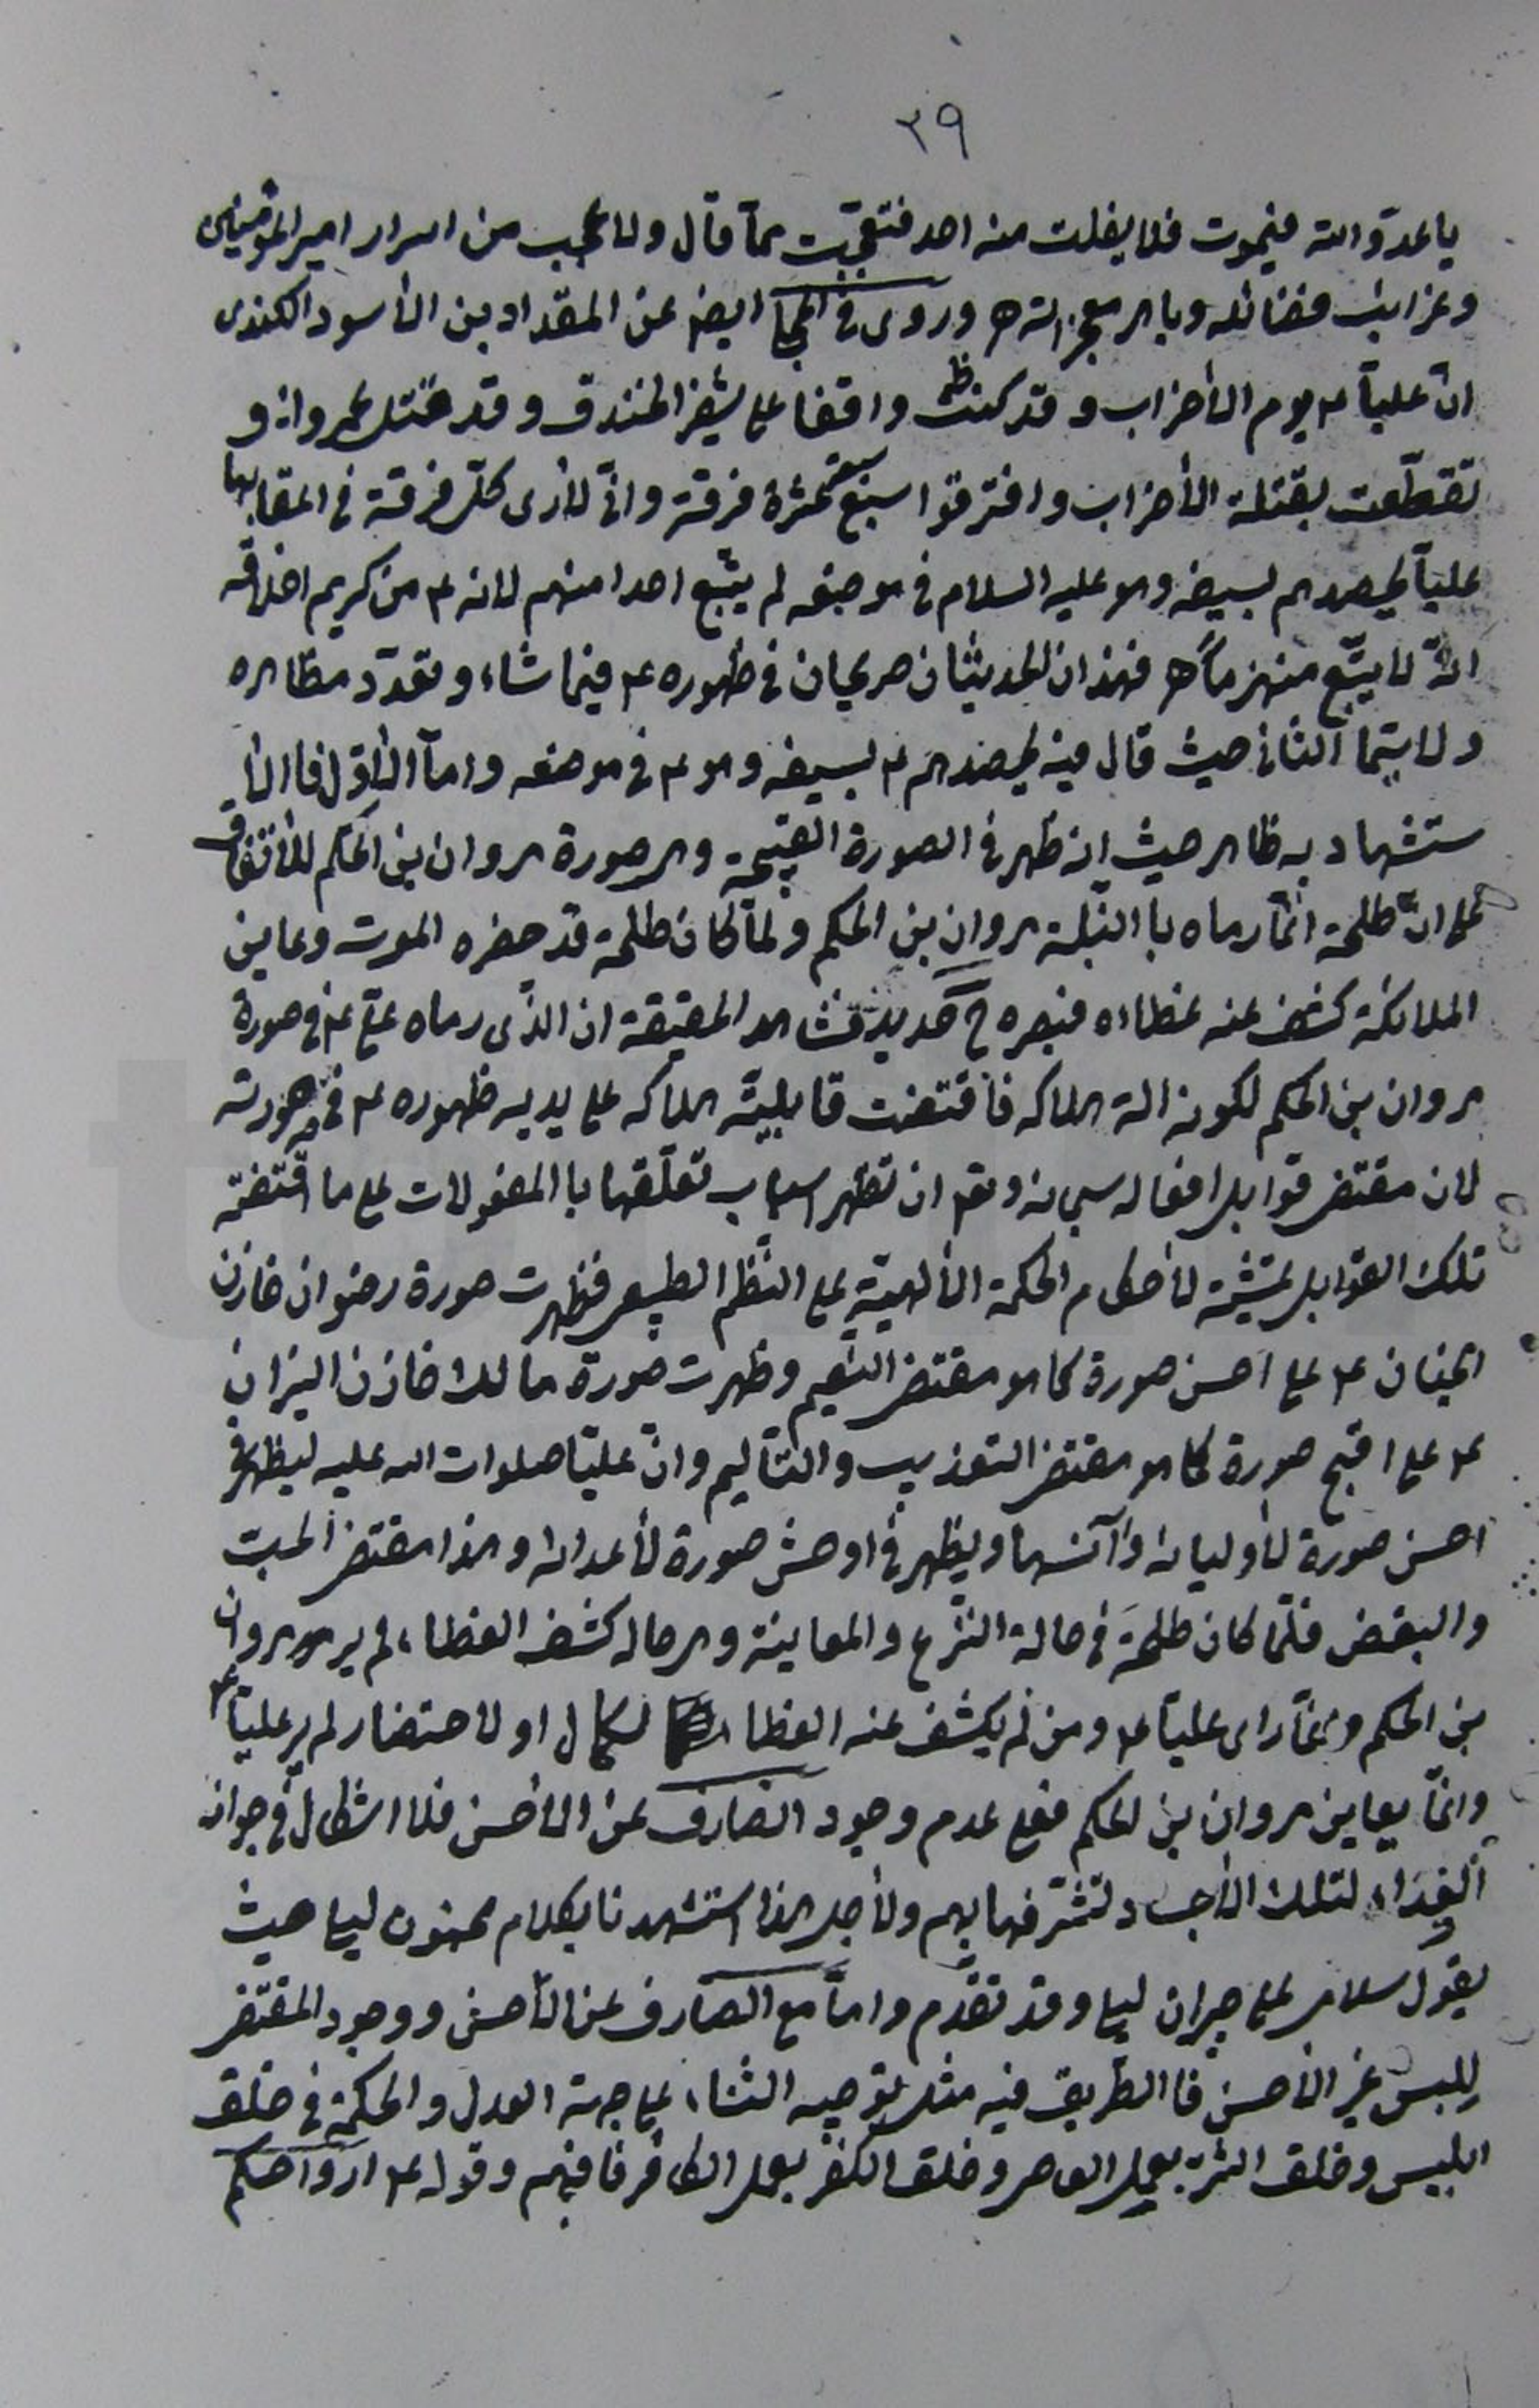 ٣٩
يا عدوّ الله فيموت فلا يفلت منه احد فتعجّبت ممّا قال ولا عجب من اسرار امير المؤمنين
وغرايب فضائله وباهر معجزاته ه وروى فى المجلى ايض عن المقداد بن الأسود الكندى
انّ عليّاً ع يوم الأحزاب وقد كنت واقفا على شفير الخندق وقد قتل عمرواً و
تقطّعت بقتله الأحزاب وافترقوا سبع عشرة فرقة وانّى لأرى كلّ فرقة فى اعقابها
عليّاً يحصدهم بسيفه وهو عليه السلام فى موضعه لم يتبع احدا منهم لانه ع من كريم اخلاقه
انّه لا يتّبع منهزماً ه فهذان الحديثان صريحان فى ظهوره ع فيما شاء وتعدّد مظاهره
ولا سيّما الثانى حيث قال فيه يحصدهم ع بسيفه وهو ع فى موضعه وامّا الأوّل فاالأ
ستشهاد به ظاهر حيث انه ظهر فى الصورة القبيحة وهى صورة مروان بن الحكم للأتفاق
على انّ طلحة انّما رماه باالنّبلة مروان بن الحكم ولمّا كان طلحة قد حضره الموت وعاين
الملائكة كشف عنه غطاءه فبصره ح حديد فشاهد الحقيقة ان الذّى رماه علىّ ع فى صورة
مروان بن الحكم لكونه الة هلاكه فاقتضت قابليّة هلاكه على يديه ظهوره ع فى صورته
لان مقتضى قوابل افعاله سبحانه وتع ان تظهر اسباب تعلّقها باالمفعولات على ما اقتضته
تلك القوابل بمشيّة لأحكام الحكمة الألهيّة على النّظم الطبيعى فظهرت صورة رضوان خازن
الجنان ع على احسن صورة كما هو مقتضى النّعيم وظهرت صورة مالك خازن النيران
ع على اقبح صورة كما هو مقتضى التعذيب والتّأليم وانّ عليّا صلوات الله عليه ليظهر فى
احسن صورة لأوليائه وآنسها ويظهر فى اوحش صورة لأعدائه وهذا مقتضى الحبّ
والبغض فلمّا كان طلحة فى حالة النّزع والمعاينة وهى حالة كشف الغطاء لم ير مروان
بن الحكم وانّما راى عليّاً ع ومن لم يكشف عنه الغطا لكمال او لاحتضار لم ير عليّاً ع
وانّما يعاين مروان بن الحكم فعلى عدم وجود الصارف عن الأحسن فلا اشكال فى جواز
الفداء لتلك الأجساد لتشرّفها بهم ولأجل هذا استشهدنا بكلام مجنون ليلى حيث
يقول سلامى على جيران ليلى وقد تقدّم وامّا مع الصّارف عن الأحسن ووجود المقتضى
للبس غير الأحسن فاالطّريق فيه مثل توجيه الثناء على جهة العدل والحكمة فى خلق
ابليس وخلق الشرّ بعمل العاصى وخلق الكفر بعمل الكافر فافهم وقوله ع ارواحكم